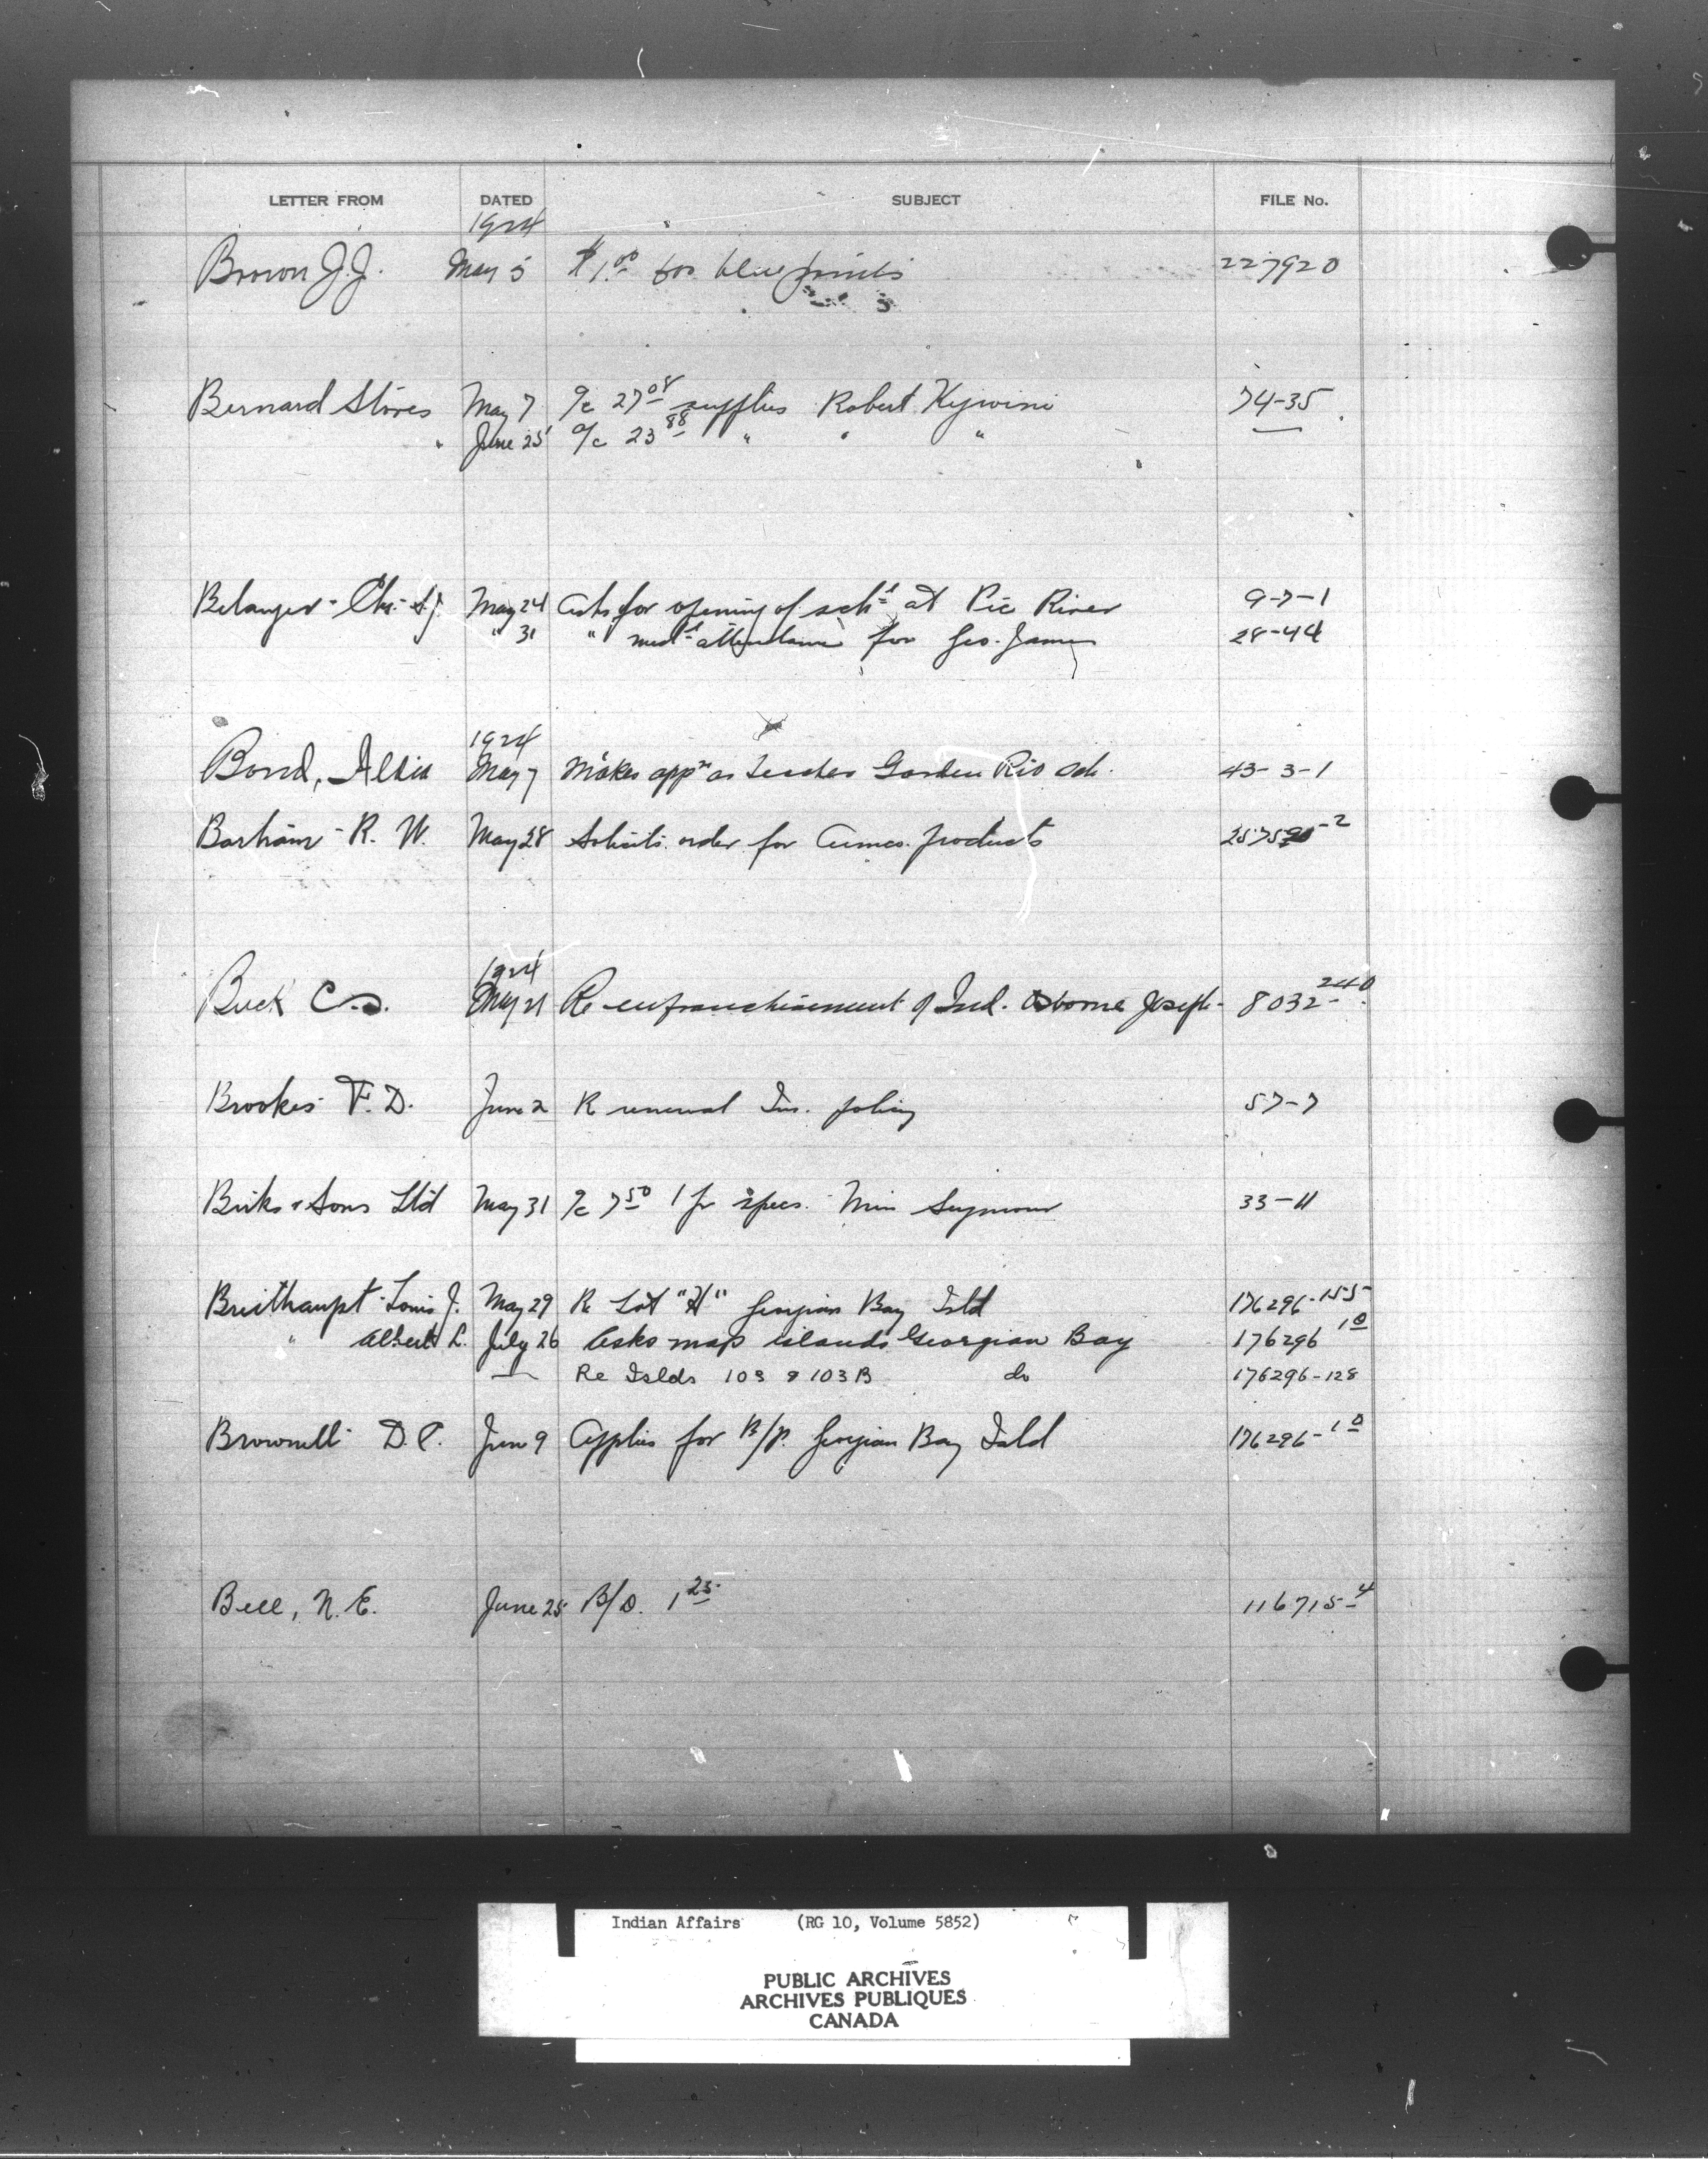 LETTER FROM DATED SUBJECT FILE No.
1924
Brown J.J. May 5 $1.00 for blue prints 227920
Bernard Stores May 7 a/c 27 08 supplies Robert Kejwini 74-35
" June 25 a/c 23 88 " " "
Belanger - Chs. S.J. May 24 Asks for opening of schl at Pic River 9-7-1
" 31 " medl attendance for Geo. James 28-44
1924
Bond, May 7 Makes appn as Teacher Garden Riv Sch. 43-3-1
Barham - R. W. May 28 Solicits order for products
1924
Buck C.D. May 21 Re enfranchisement of Ind. Osborne Joseph - 8032-240
Brookes F. D. June 2 Re renewal Ins. policy 57-7
Birks & Sons Ltd May 31 a/c 7 50 1 pr specs. Miss Seymour 33-11
Breithaupt - Louis J. May 29 Re Lot "H" Georgian Bay Isld 176296-155
" Albert L. July 26 Asks map islands Georgian Bay 176296 10
— Re Islds 103 & 103B do 176296-128
Brownell D. C. June 9 Applies for B/P. Georgian Bay Isld 176296-10
Bell, N. E. June 25 B/D. 1 25 116715-4
Indian Affairs (RG 10, Volume 5852)
PUBLIC ARCHIVES
ARCHIVES PUBLIQUES
CANADA